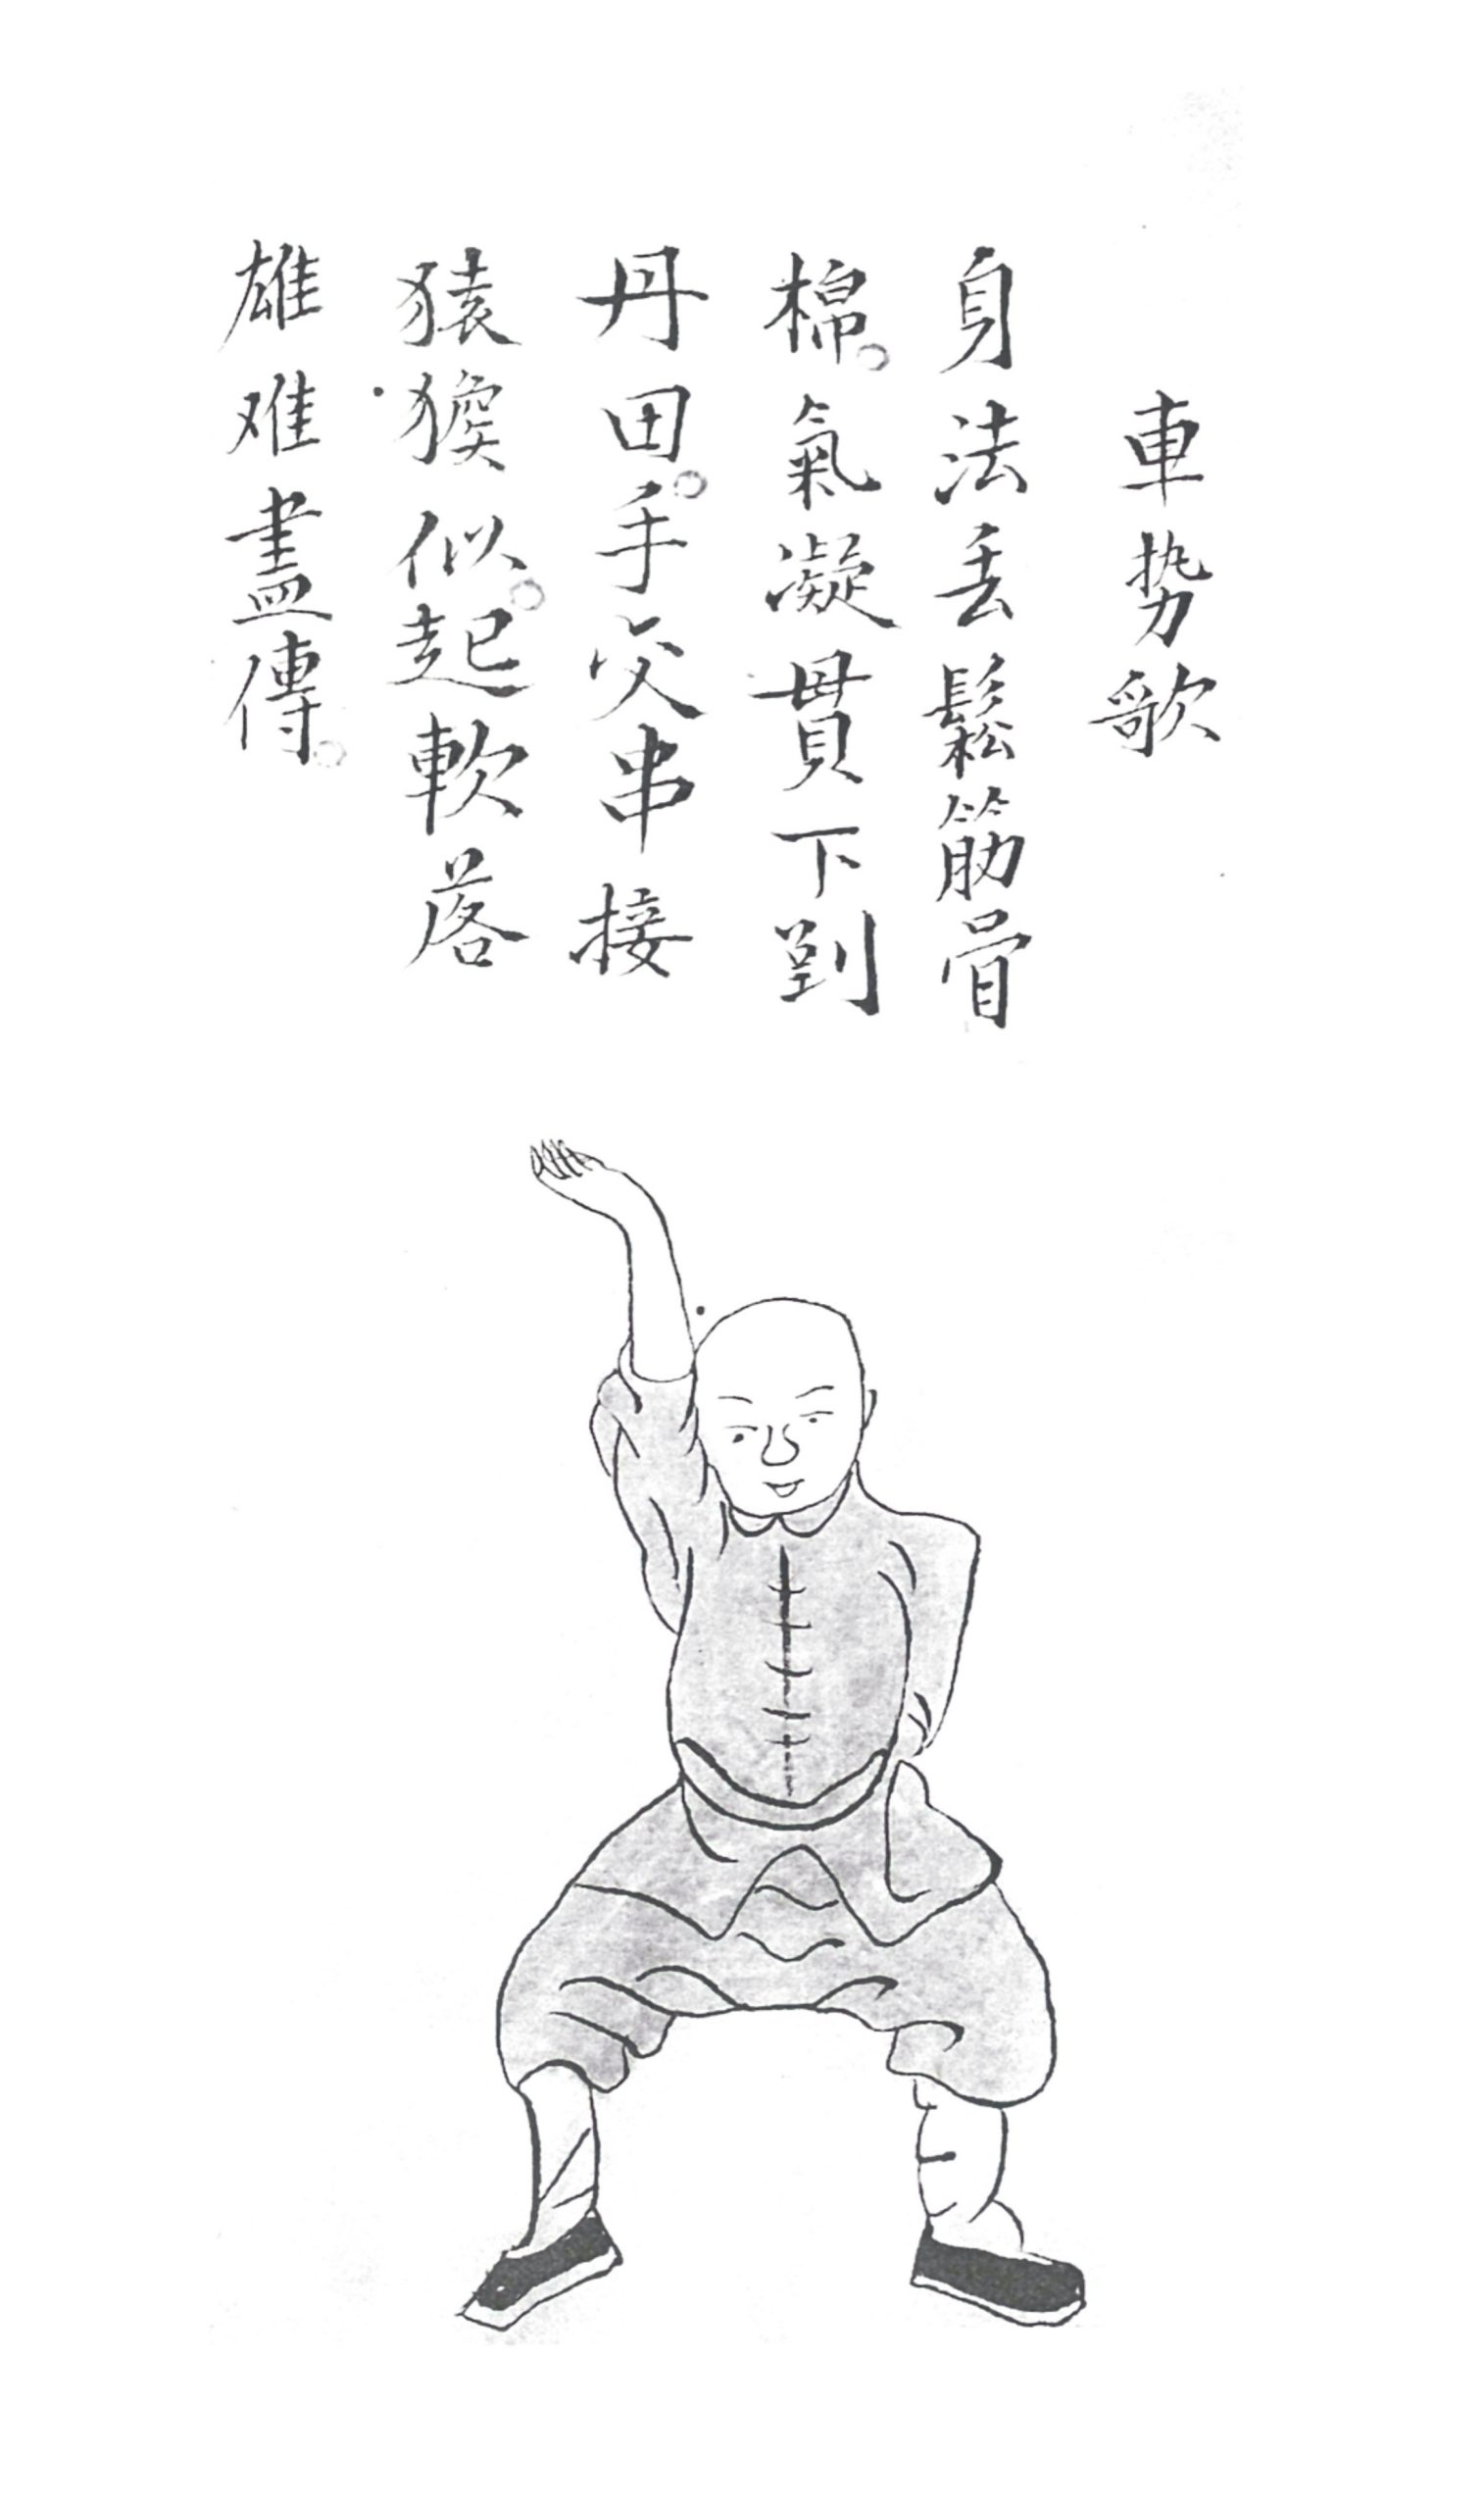 車势歌
身法丢鬆筋骨
棉。氣凝貫下到
丹田。手交串接
猿猴似。起軟落
雄难盡傳。